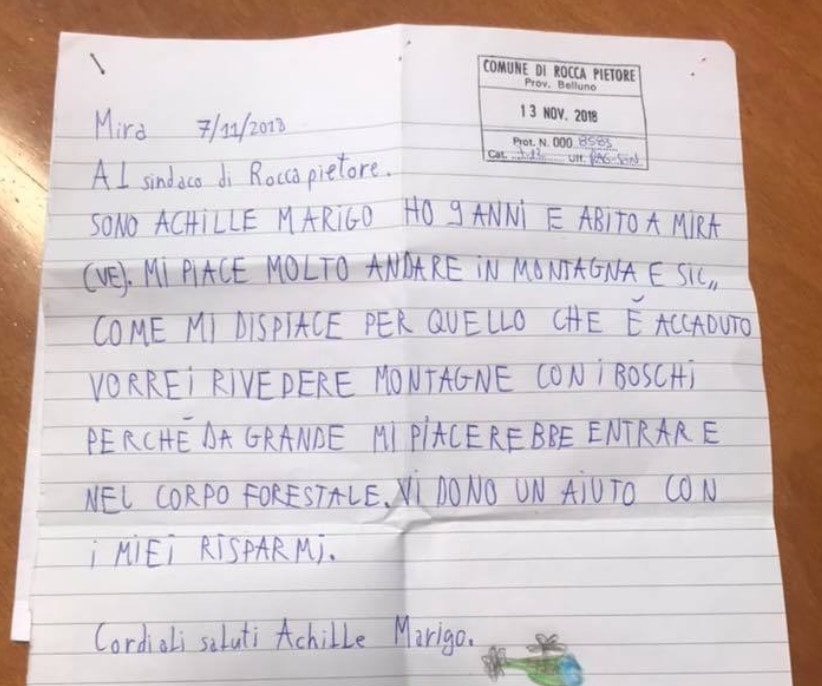 COMUNE DI ROCCA PIETORE
Prov. Belluno
13 NOV. 2018
Prot. N. 000 8583
Cat. Uff.
Mira 7/11/2018
Al sindaco di Rocca pietore.
SONO ACHILLE MARIGO HO 9 ANNI E ABITO A MIRA
(VE). MI PIACE MOLTO ANDARE IN MONTAGNA E SIC,,
COME MI DISPIACE PER QUELLO CHE È ACCADUTO
VORREI RIVEDERE MONTAGNE CON I BOSCHI
PERCHÉ DA GRANDE MI PIACEREBBE ENTRARE
NEL CORPO FORESTALE. VI DONO UN AIUTO CON
I MIEI RISPARMI.
Cordiali saluti Achille Marigo.